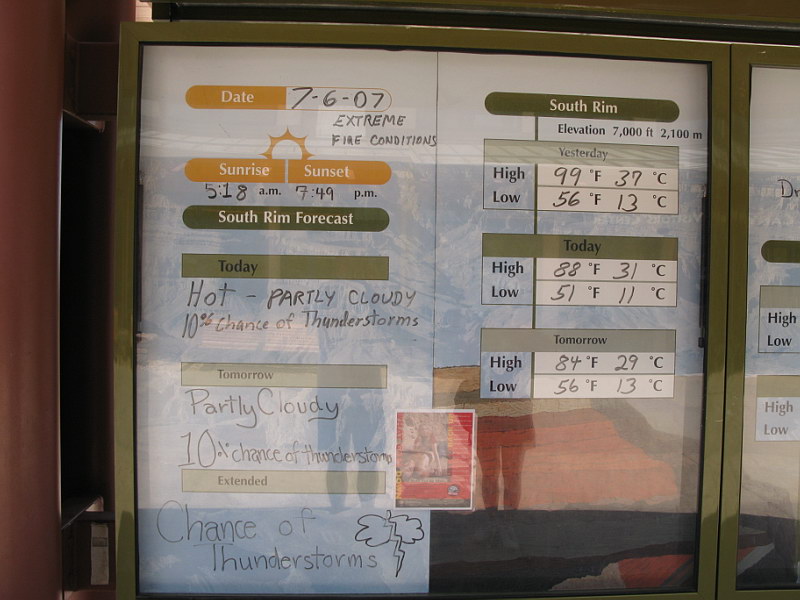 Date 7-6-07
EXTREME
FIRE CONDITIONS
Sunrise Sunset
5:18 a.m. 7:49 p.m.
South Rim Forecast
Today
Hot - PARTLY CLOUDY
10% Chance of Thunderstorms
Tomorrow
Partly Cloudy
10% chance of thunderstorms
Extended
Chance of
Thunderstorms
South Rim
Elevation 7,000 ft 2,100 m
Yesterday
High 99 °F 37 °C
Low 56 °F 13 °C
Today
High 88 °F 31 °C
Low 51 °F 11 °C
Tomorrow
High 84 °F 29 °C
Low 56 °F 13 °C
Dr
High
Low
High
Low